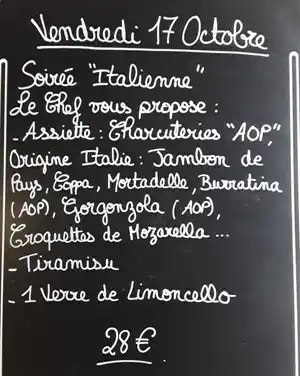 Vendredi 17 Octobre
Soirée "Italienne"
Le Chef vous propose :
- Assiette : Charcuteries "AOP,"
Origine Italie : Jambon de
Pays, Coppa, Mortadelle, Burratina
(AOP), Gorgonzola (AOP),
Croquettes de Mozarella ...
- Tiramisu
- 1 Verre de Limoncello
28 €